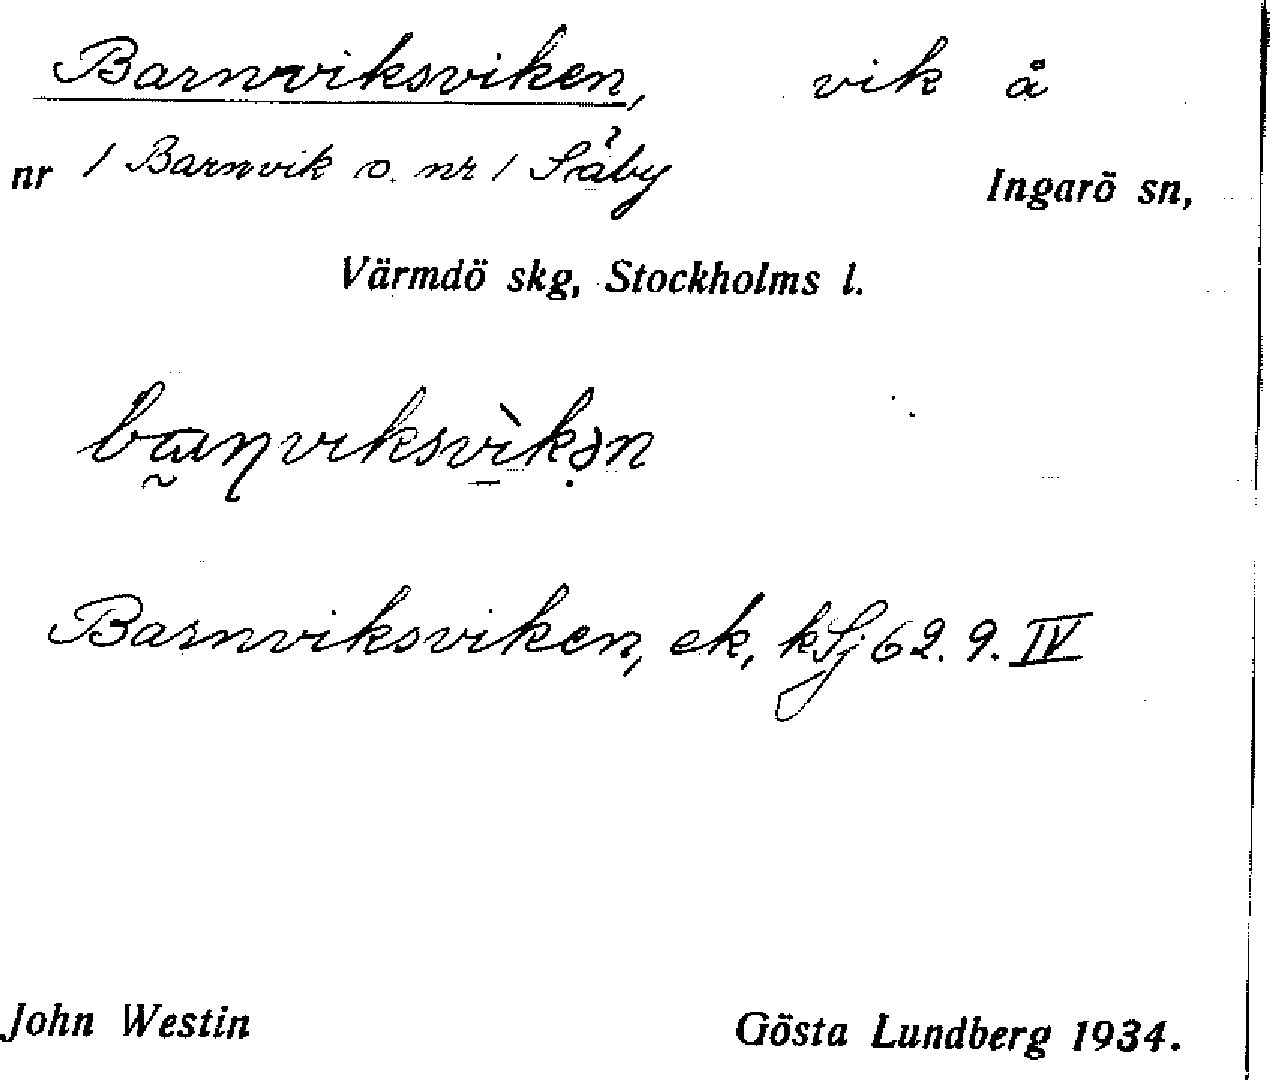 Barnviksviken, vik å
nr 1 Barnvik o. nr 1 Säby Ingarö sn,
Värmdö skg, Stockholms l.
Barnviksviken, ek, kSj 62. 9. IV
John Westin Gösta Lundberg 1934.